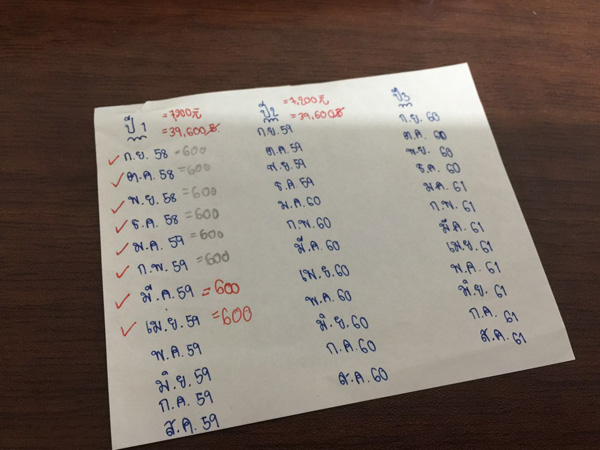 ปี 1 = 7,200元
= 39,600฿
✓ ก.ย. 58 = 600
✓ ต.ค. 58 = 600
✓ พ.ย. 58 = 600
✓ ธ.ค. 58 = 600
✓ ม.ค. 59 = 600
✓ ก.พ. 59 = 600
✓ มี.ค. 59 = 600
✓ เม.ย. 59 = 600
พ.ค. 59
มิ.ย. 59
ก.ค. 59
ส.ค. 59
ปี 2 = 7,200元
= 39,600฿
ก.ย. 59
ต.ค. 59
พ.ย. 59
ธ.ค. 59
ม.ค. 60
ก.พ. 60
มี.ค. 60
เม.ย. 60
พ.ค. 60
มิ.ย. 60
ก.ค. 60
ส.ค. 60
ปี 3
ก.ย. 60
ต.ค. 60
พ.ย. 60
ธ.ค. 60
ม.ค. 61
ก.พ. 61
มี.ค. 61
เม.ย. 61
พ.ค. 61
มิ.ย. 61
ก.ค. 61
ส.ค. 61